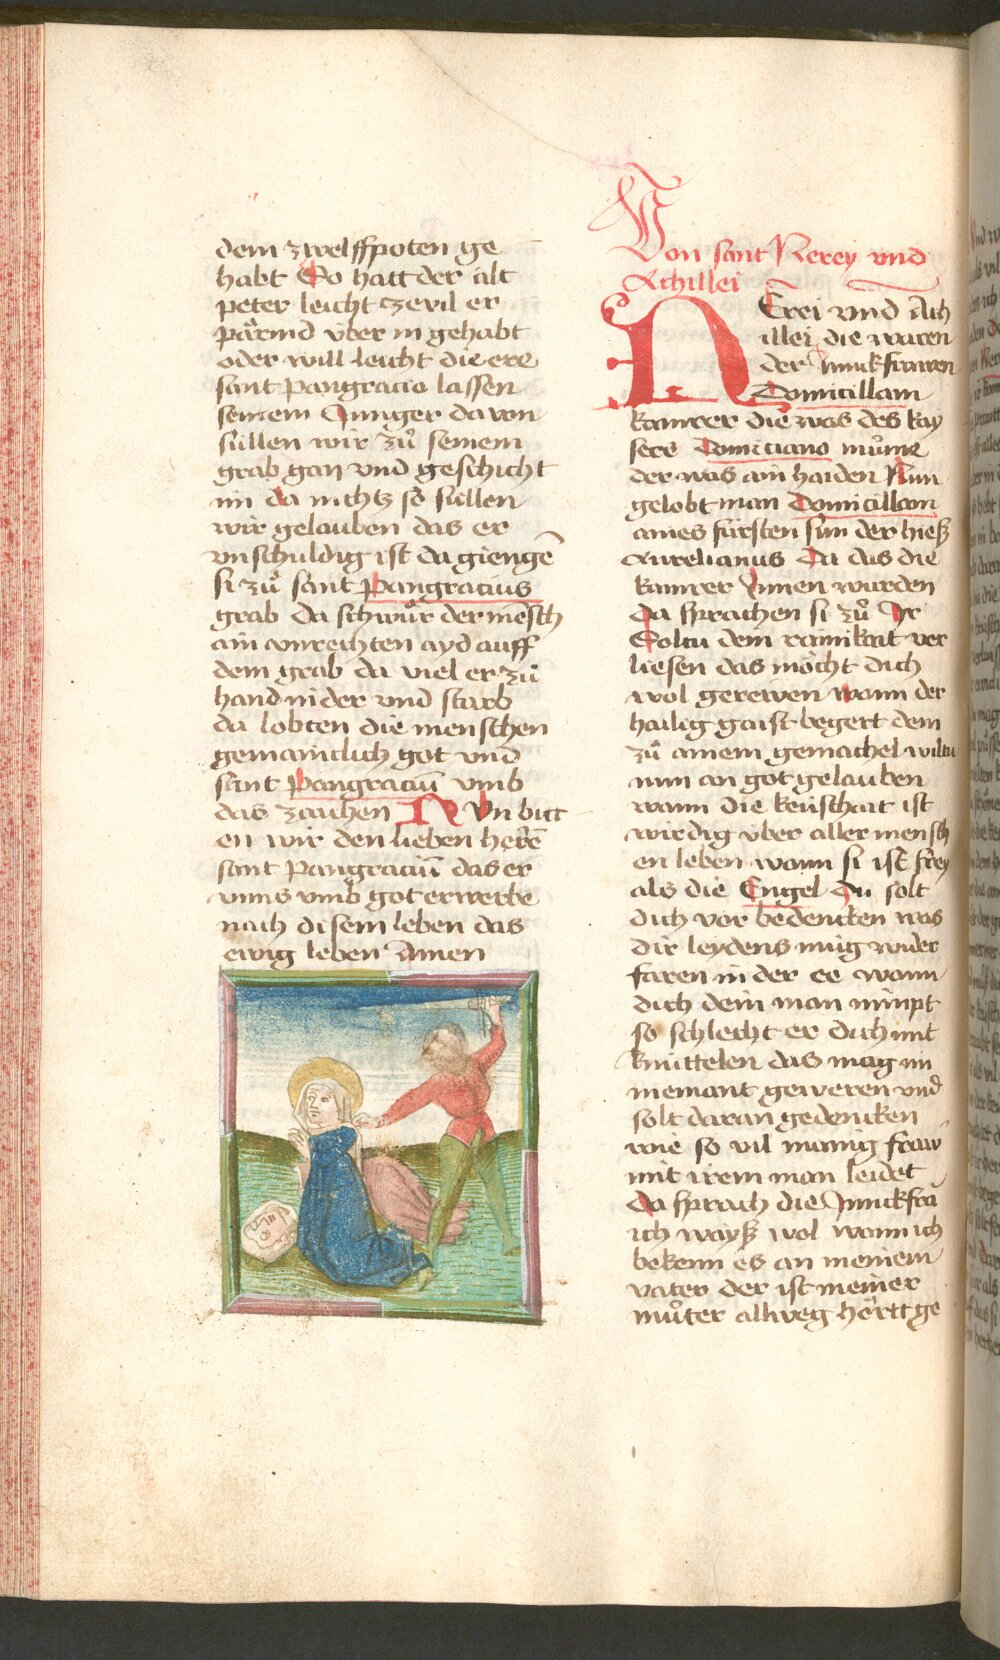 dem zwelffpoten ge
habt So hatt der alt
peter leicht czevil er
pärmd vber in gehabt
oder will leicht die ere
sant pangracio lassen
seinem Junger da von
süllen wir zů seinem
grab gan vnd geschicht
im da nichtz so süllen
wir gelauben das er
vnschuldig ist da giengē
si zů sant Pangracius
grab da schwůr der mēsch
ain vnrechten ayd auff
dem grab da viel er zů
hand nider vnd starb
da lobten die menschen
gemainclich got vnd
sant Pangraciū vmb
das zaichen NVn bitt
en wir den lieben herrē
sant Pangraciū das er
vnns vmb got erwerbe
nach disem leben das
ewig leben Amen
Von sant Nerey vnd
Achillei
NErei vnd Ach
illei die waren
der Junckfrawen
Domicillam
kamrer die was des kay
sers Domiciano můme
der was ain haiden Nun
gelobt man Domicillam
aines fürsten sun der hieß
Aurelianus Da das die
kamrer Jnnen wurden
da sprachen si zů Jr
Soltu dem rainikait ver
liesen das möcht dich
wol gerewen wann der
hailig gaist begert dem
zů ainem gemachel wiltu
nun an got gelauben
wann die keüschait ist
wirdig vber aller mensch
en leben wann si ist frey
als die Engel Du solt
dich vor bedencken was
dir leydens müg wider
faren in der ee wann
dich dein man nimpt
so schlecht er dich mit
knüttelen das mag im
niemant geweren vnd
solt daran gedencken
wie so vil manig fraw
mit irem man leidet
Da sprach die Junckfra
ich wayß wol wann ich
bekenn es an meinem
vater der ist meiner
můter allweg hörtt ge